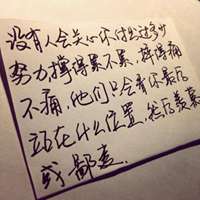 没有人会关心你付出过多少
努力撑得累不累,摔得痛
不痛,他们只会看你最后
站在什么位置,然后羡慕
或鄙夷.